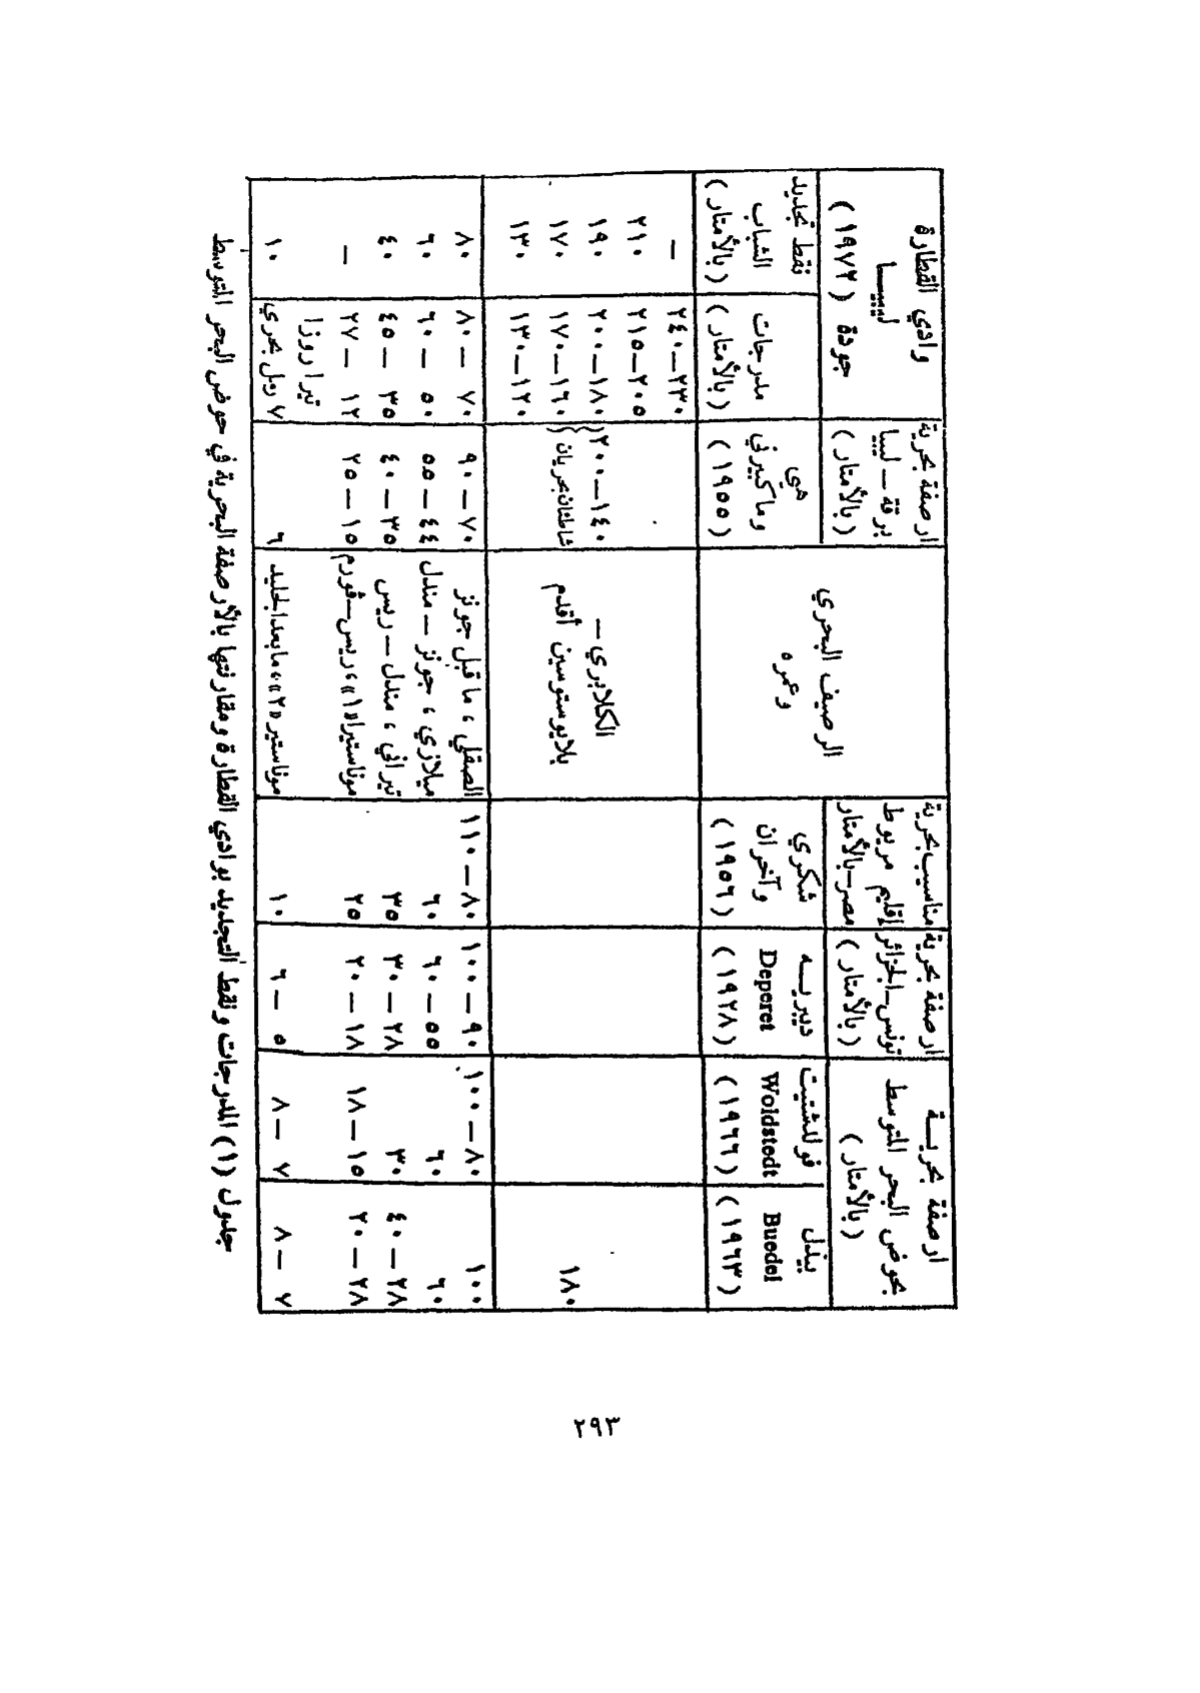 ارصفة بحرية
بحوض البحر المتوسط
(بالأمتار)
ارصفة بحرية
تونس–الجزائر
(بالأمتار)
مناسيب بحرية
إقليم مريوط
مصر–بالأمتار
الرصيف البحري
وعمره
ارصفة بحرية
برقة – ليبيا
(بالأمتار)
وادي القطارة
ليبيا
جودة (١٩٧٢)
بيدل
Buedel
(١٩٦٣)
فولدشتيت
Woldstedt
(١٩٦٦)
ديبريه
Deperet
(١٩٢٨)
شكري
وآخران
(١٩٥٦)
هي
وماكبيرني
(١٩٥٥)
مدرجات
(بالأمتار)
نقط تجديد
الشباب
(بالأمتار)
٢٣٠–٢٤٠ –
٢٠٥–٢١٥ ٢١٠
الكلابري – ١٤٠–٢٠٠ ١٨٠–٢٠٠ ١٩٠
١٨٠ بلايوستوسين أقدم شاطئان بحريان ١٦٠–١٧٠ ١٧٠
١٢٠–١٣٠ ١٣٠
١٠٠ ٨٠–١٠٠ ٩٠–١٠٠ ٨٠–١١٠ الصقلي، ما قبل جونز ٧٠–٩٠ ٧٠ – ٨٠ ٨٠
٦٠ ٦٠ ٥٥ – ٦٠ ٦٠ ميلازي، جونز – مندل ٤٤ – ٥٥ ٥٠ – ٦٠ ٦٠
٢٨ – ٤٠ ٣٠ ٢٨ – ٣٠ ٣٥ تيراني، مندل – ريس ٣٥ – ٤٠ ٣٥ – ٤٥ ٤٠
٢٨ – ٢٠ ١٥ – ١٨ ١٨ – ٢٠ ٢٥ موناستير«١»، ريس–فورم ١٥ – ٢٥ ١٢ – ٢٧ –
تيرا روزا
٧ – ٨ ٧ – ٨ ٥ – ٦ ١٠ موناستير«٢»، ما بعد الجليد ٦ ٧ رمل بحري ١٠
جدول (١) المدرجات ونقط التجديد بوادي القطارة ومقارنتها بالأرصفة البحرية في حوض البحر المتوسط
٢٩٣